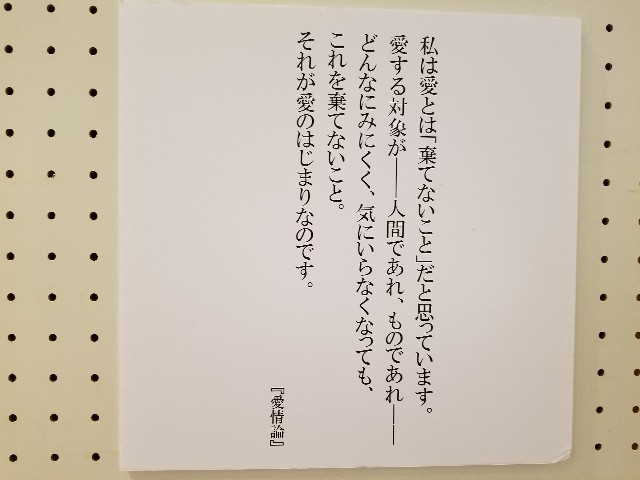 私は愛とは「棄てないこと」だと思っています。
愛する対象が――人間であれ、ものであれ――
どんなにみにくく、気にいらなくなっても、
これを棄てないこと。
それが愛のはじまりなのです。
『愛情論』